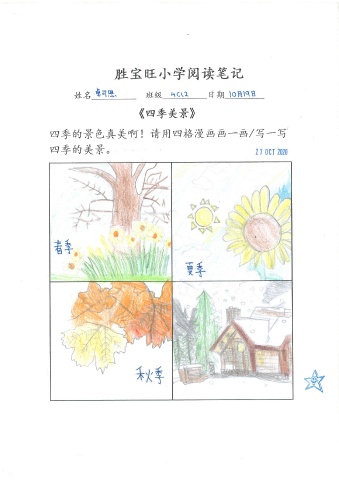 胜宝旺小学阅读笔记
姓名 班级 4CL2 日期 10月19日
《四季美景》
四季的景色真美啊！请用四格漫画画一画/写一写
四季的美景。
27 OCT 2020
春季
夏季
秋季